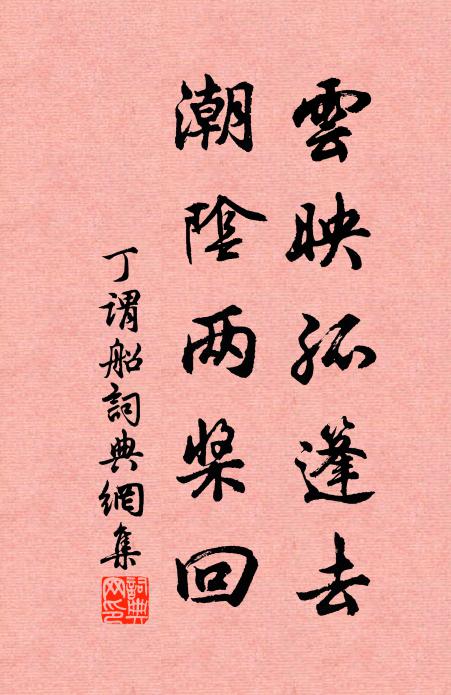 雲映孤篷去
潮陰两槳回
丁謂船詞典網集
詞典网印